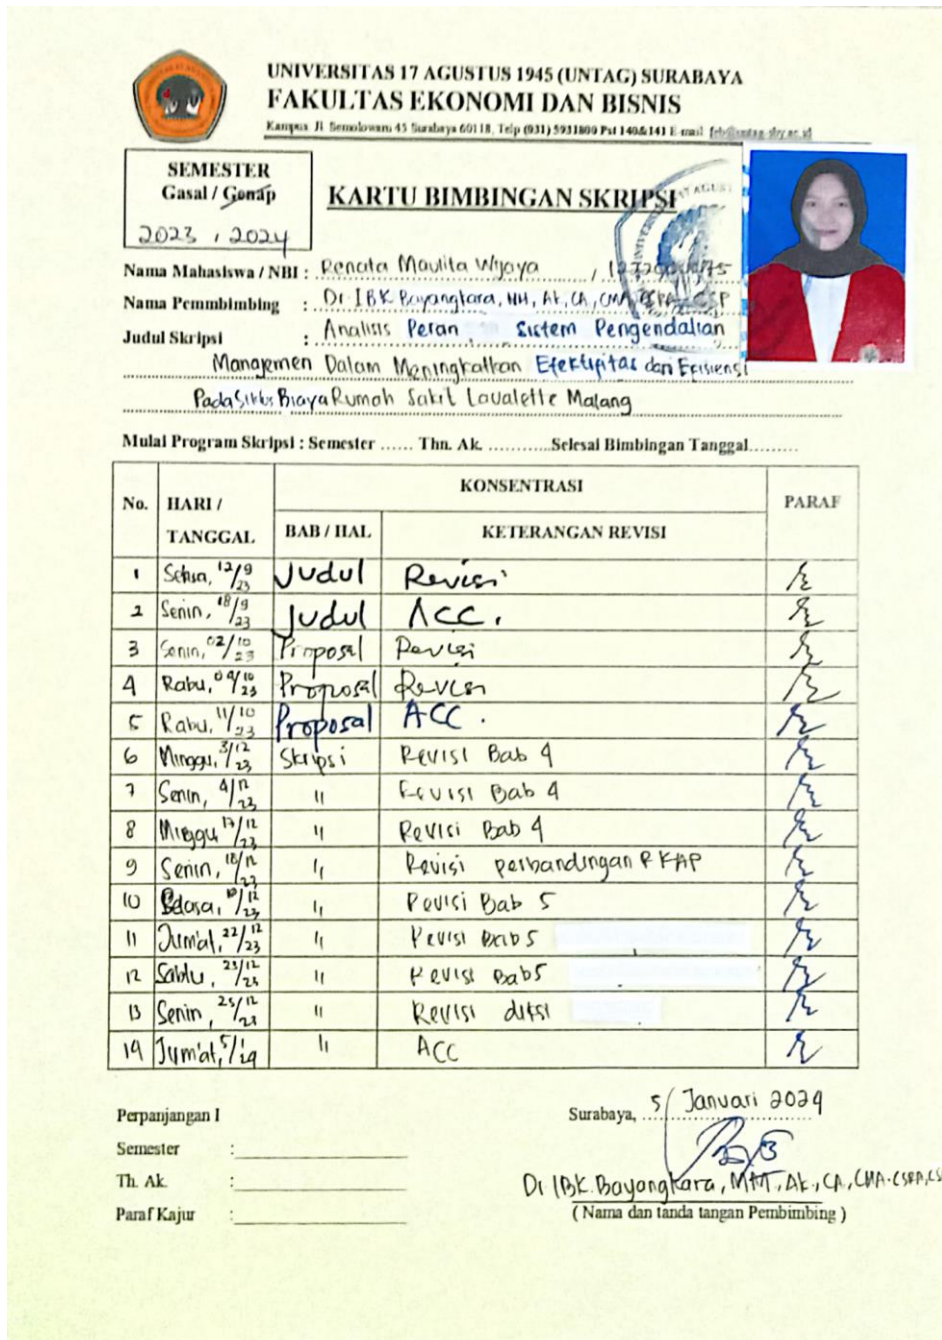 UNIVERSITAS 17 AGUSTUS 1945 (UNTAG) SURABAYA
FAKULTAS EKONOMI DAN BISNIS
Kampus Jl Semolowaru 45 Surabaya 60118, Telp (031) 5931800 Pst 140&141 E-mail feb@untag-sby.ac.id
SEMESTER
Gasal / Genap
2023 / 2024
KARTU BIMBINGAN SKRIPSI
Nama Mahasiswa / NBI : Renata Maulita Wijaya /
Nama Pemmbimbing : Dr. IBK Bayangkara, MM, Ak, CA, CMA, CSRA, CSP
Judul Skripsi : Analisis Peran Sistem Pengendalian
Manajemen Dalam Meningkatkan Efektifitas dan Efisiensi
Pada Siklus Biaya Rumah Sakit Lavalette Malang
Mulai Program Skripsi : Semester ...... Thn. Ak. ............Selesai Bimbingan Tanggal.........
No. HARI / TANGGAL KONSENTRASI PARAF
BAB / HAL KETERANGAN REVISI
1 Selasa, 12/9 23 Judul Revisi
2 Senin, 18/9 23 Judul ACC.
3 Senin, 02/10 23 Proposal Revisi
4 Rabu, 04/10 23 Proposal Revisi
5 Rabu, 11/10 23 Proposal ACC.
6 Minggu, 3/12 23 Skripsi Revisi Bab 4
7 Senin, 4/12 23 " Revisi Bab 4
8 Minggu 17/12 23 " Revisi Bab 4
9 Senin, 18/12 23 " Revisi perbandingan RKAP
10 Selasa, /12 23 " Revisi Bab 5
11 Jum'at, 22/12 23 " Revisi Bab 5
12 Sabtu, 23/12 23 " Revisi Bab 5
13 Senin, 25/12 23 " Revisi diksi
14 Jum'at, 5/1 24 " ACC
Perpanjangan I
Semester :
Th. Ak. :
Paraf Kajur :
Surabaya, 5 / Januari 2024
Dr IBK. Bayangkara, MM., Ak, CA, CMA. CSRA,
( Nama dan tanda tangan Pembimbing )